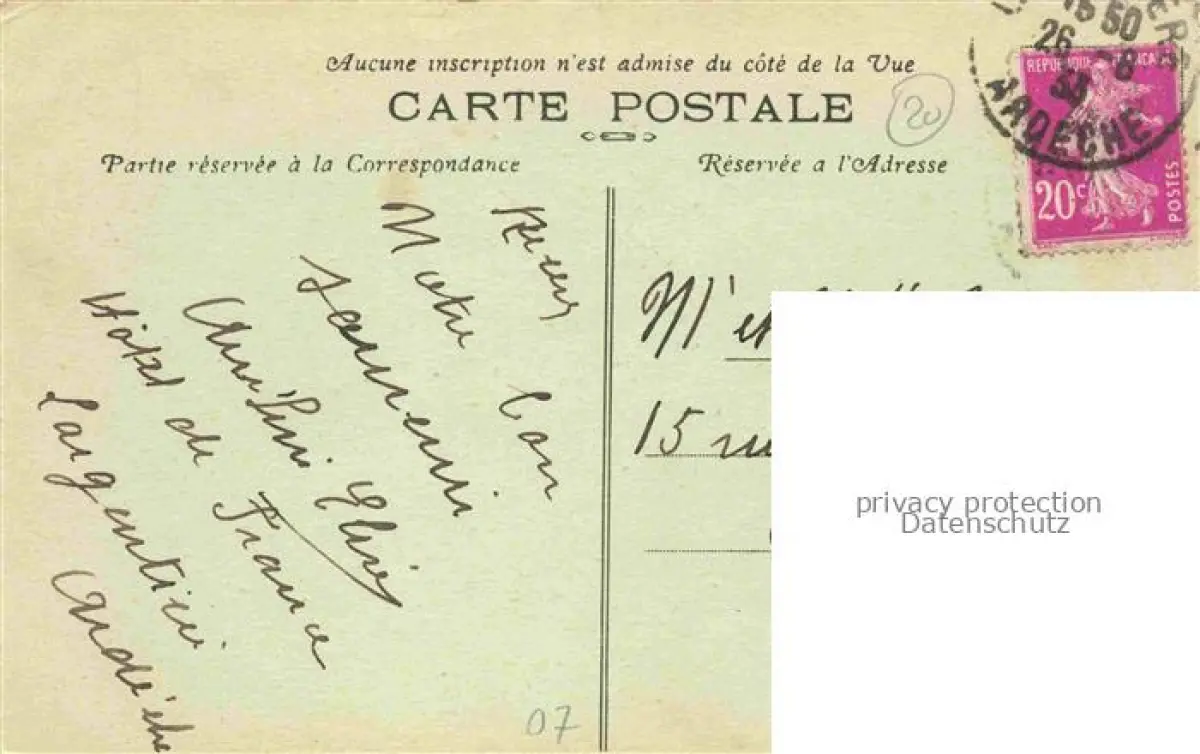 Aucune inscription n'est admise du côté de la Vue
CARTE POSTALE
20
Partie réservée à la Correspondance
Réservée a l'Adresse
15 50
26 - 8
33
ARDECHE
REPUBLIQUE FRANCAISE
20c
POSTES
Notre bon
souvenir
Hôtel de France
Largentière
Ardèche
M' et
15 rue
privacy protection
Datenschutz
07